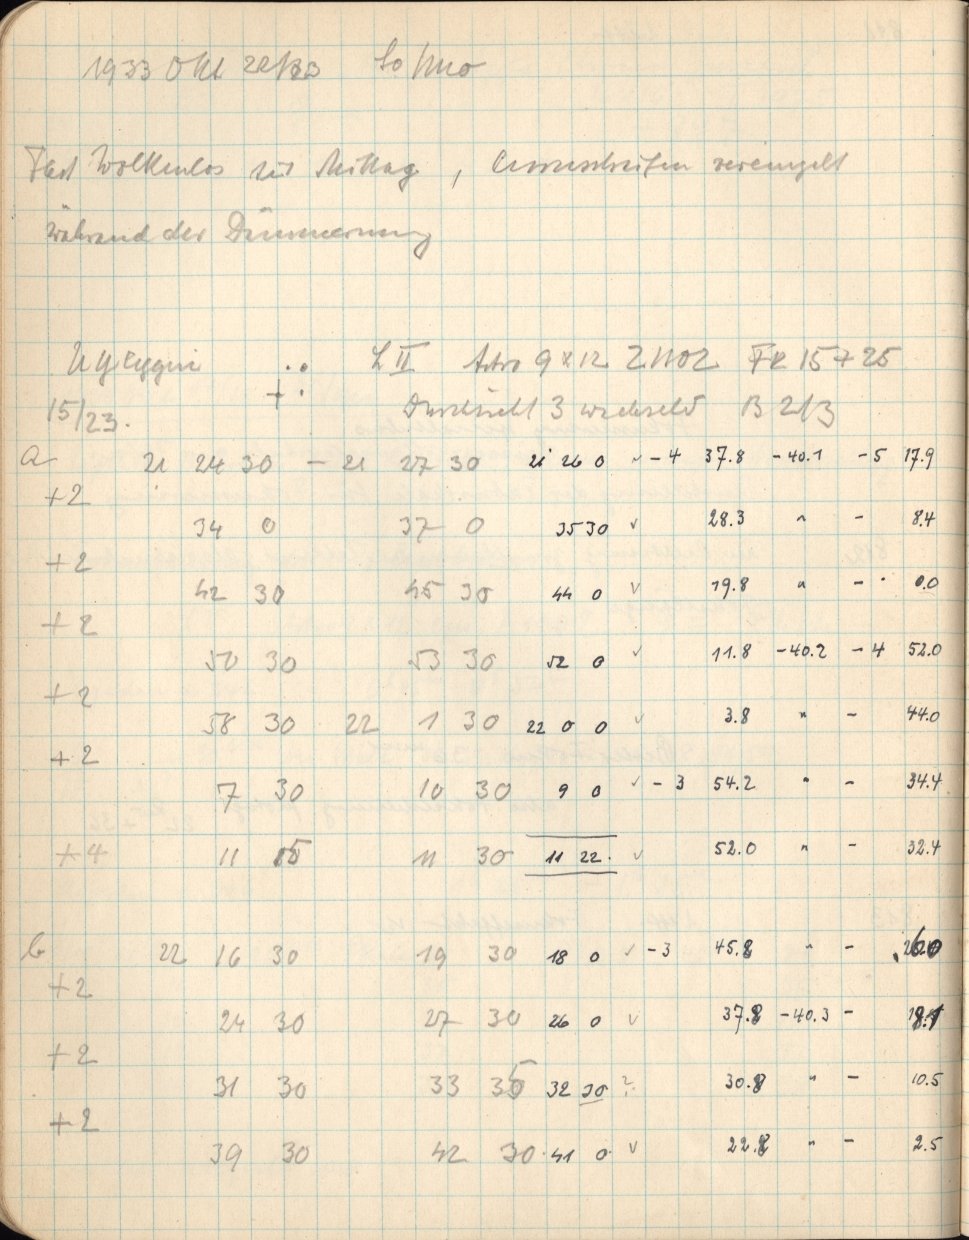 1933 Okt 22/23 So/Mo
Fast Wolkenlos seit Mittag, Cirrusstreifen vereinzelt
während der Dämmerung
U Cygni L II Astro 9x12 Z 1102 FR 15+25
15/23. Durchsicht 3 wechselnd B 2/3
a 21 24 30 – 21 27 30 21 26 0 ✓ -4 37.8 -40.1 -5 17.9
+2
34 0 37 0 35 30 ✓ 28.3 " - 8.4
+2
42 30 45 30 44 0 ✓ 19.8 " - 0.0
+2
50 30 53 30 52 0 ✓ 11.8 -40.2 -4 52.0
+2
58 30 22 1 30 22 0 0 ✓ 3.8 " - 44.0
+2
7 30 10 30 9 0 ✓ -3 54.2 " - 34.4
+4 11 15 11 30 11 22. ✓ 52.0 " - 32.4
b 22 16 30 19 30 18 0 ✓ -3 45.8 " - 26.0
+2
24 30 27 30 26 0 ✓ 37.8 -40.3 - 18.1
+2
31 30 33 35 32 30 ? 30.8 " - 10.5
+2
39 30 42 30 41 0 ✓ 22.8 " - 2.5